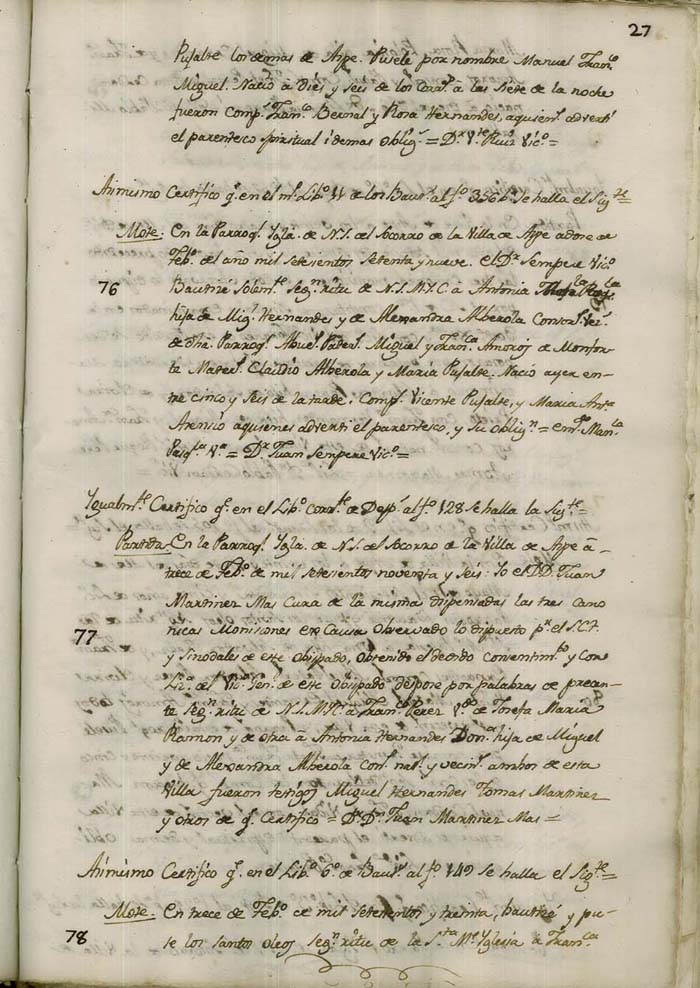 27
Pujalte los demas de Aspe. Pusele por nombre Manuel Fran.co
Miguel. Nació à diés y seis de los Corr.s a las siete de la noche
fueron Comp.s Fran.co Bernal y Rosa Hernandes, aquien.s advertí
el parentesco spiritual i demas oblig.s = D.r V.te Ruiz Vic.o =
Asimismo Certifico q.e en el m.o Lib.o 11 de los Baut.s al f.o 356 b. se halla el Sig.te =
Mote: En la Parroq.l Ygla. de N.S. del Socorro de la Villa de Aspe a dose de
Feb.o del año mil setesientos setenta y nueve. el D.r Sempere Vic.o
76
Bautisé Solem.te seg.n ritu de N.S.M.Y.C. à Antonia
hija de Mig.l Hernandes y de Alexandra Alberola Consor.s Vec.s
de dha. Parroq.l Abuel.s Pater.s Miguel y Fran.ca Amoros de Monfor-
te Mater.s Claudio Alberola y Maria Pujalte. Nació ayer en-
tre cinco y seis de la tarde: Comp.s Vicente Pujalte, y Maria Ant.a
Asensio aquienes advertí el parentesco, y su oblig.n = em.do Man.la
Pasq.la V.a = D.r Juan Sempere Vic.o =
Ygualm.te Certifico q.e en el Lib.o corr.te de Desp.s al f.o 128 se halla la Sig.te =
Partida. En la Parroq.l Ygla. de N.S. del Socorro de la Villa de Aspe à
trece de Feb.o de mil setesientos noventa y seis: Yo el D.D. Juan
Martinez Mas Cura de la misma dispensadas las tres Cano
77
nicas Monisiones ex Causa Observado lo dispuesto p.r el S.C.T.
y Sinodales de este Obispado, Obtenido el devido consentim.to y con
Lic.a del Vic.o Gen.l de este Obispado despose por palabras de presen-
te seg.n ritu de N.S.M.Y. à Fran.co Perez V.do de Josefa Maria
Ramon y de otra à Antonia Hernandes Don.a hija de Miguel
y de Alexandra Alberola Con.s nat.s y vecin.s ambos de esta
Villa fueron testigos Miguel Hernandes Tomas Martinez
y otros de q.e Certifico = D.r D.n Juan Martinez Mas =
Asimismo Certifico q.e en el Lib.o 6.o de Baut.s al f.o 149 se halla el Sig.te =
Mote. En trece de Feb.o de mil setesientos y treinta, bautisé y pu-
78
se los santos oleos seg.n ritu de la S.ta M.e Yglesia à Fran.ca